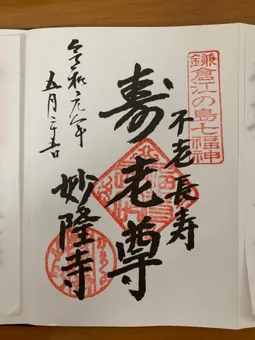 鎌倉江の島七福神
不老長寿
寿老尊
妙隆寺
令和元年
五月